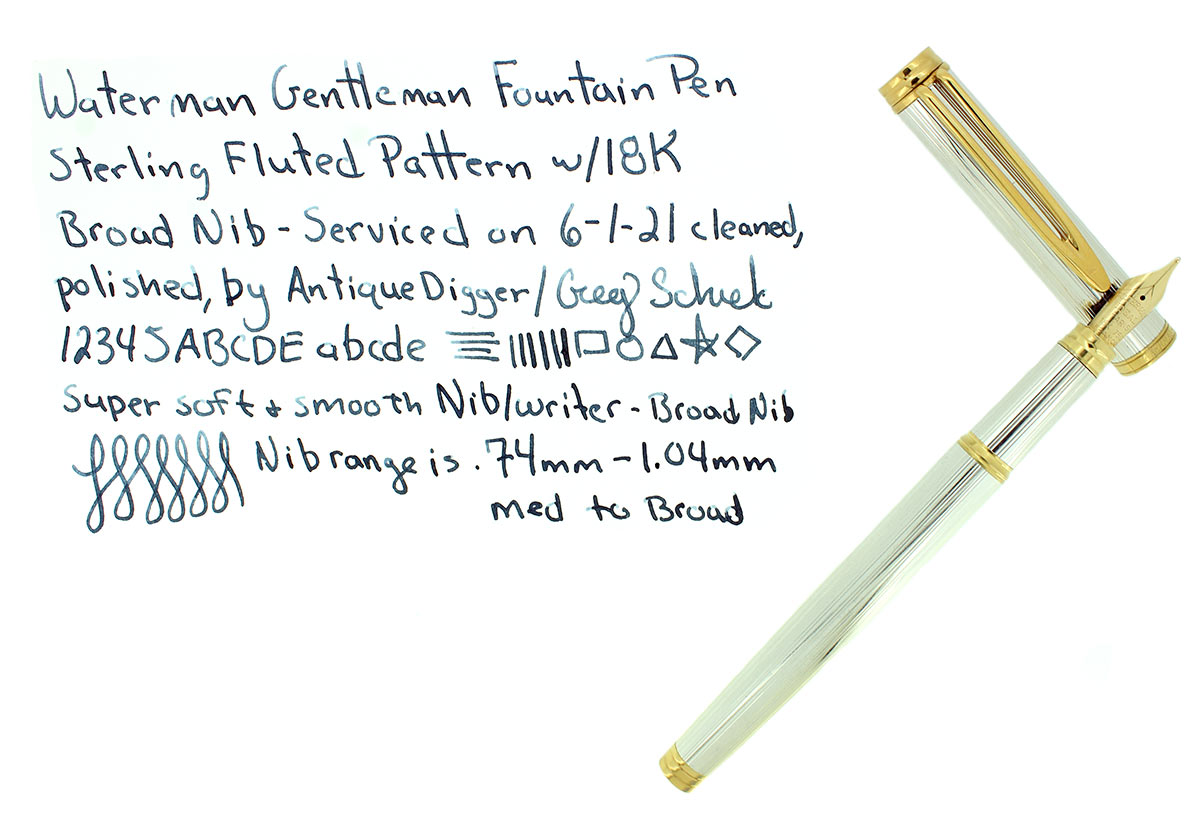 Waterman Gentleman Fountain Pen
Sterling Fluted Pattern w/18K
Broad Nib - Serviced on 6-1-21 cleaned,
polished, by AntiqueDigger/Greg
12345ABCDE abcde
Super soft & smooth Nib/writer - Broad Nib
Nib range is .74mm - 1.04mm
med to Broad